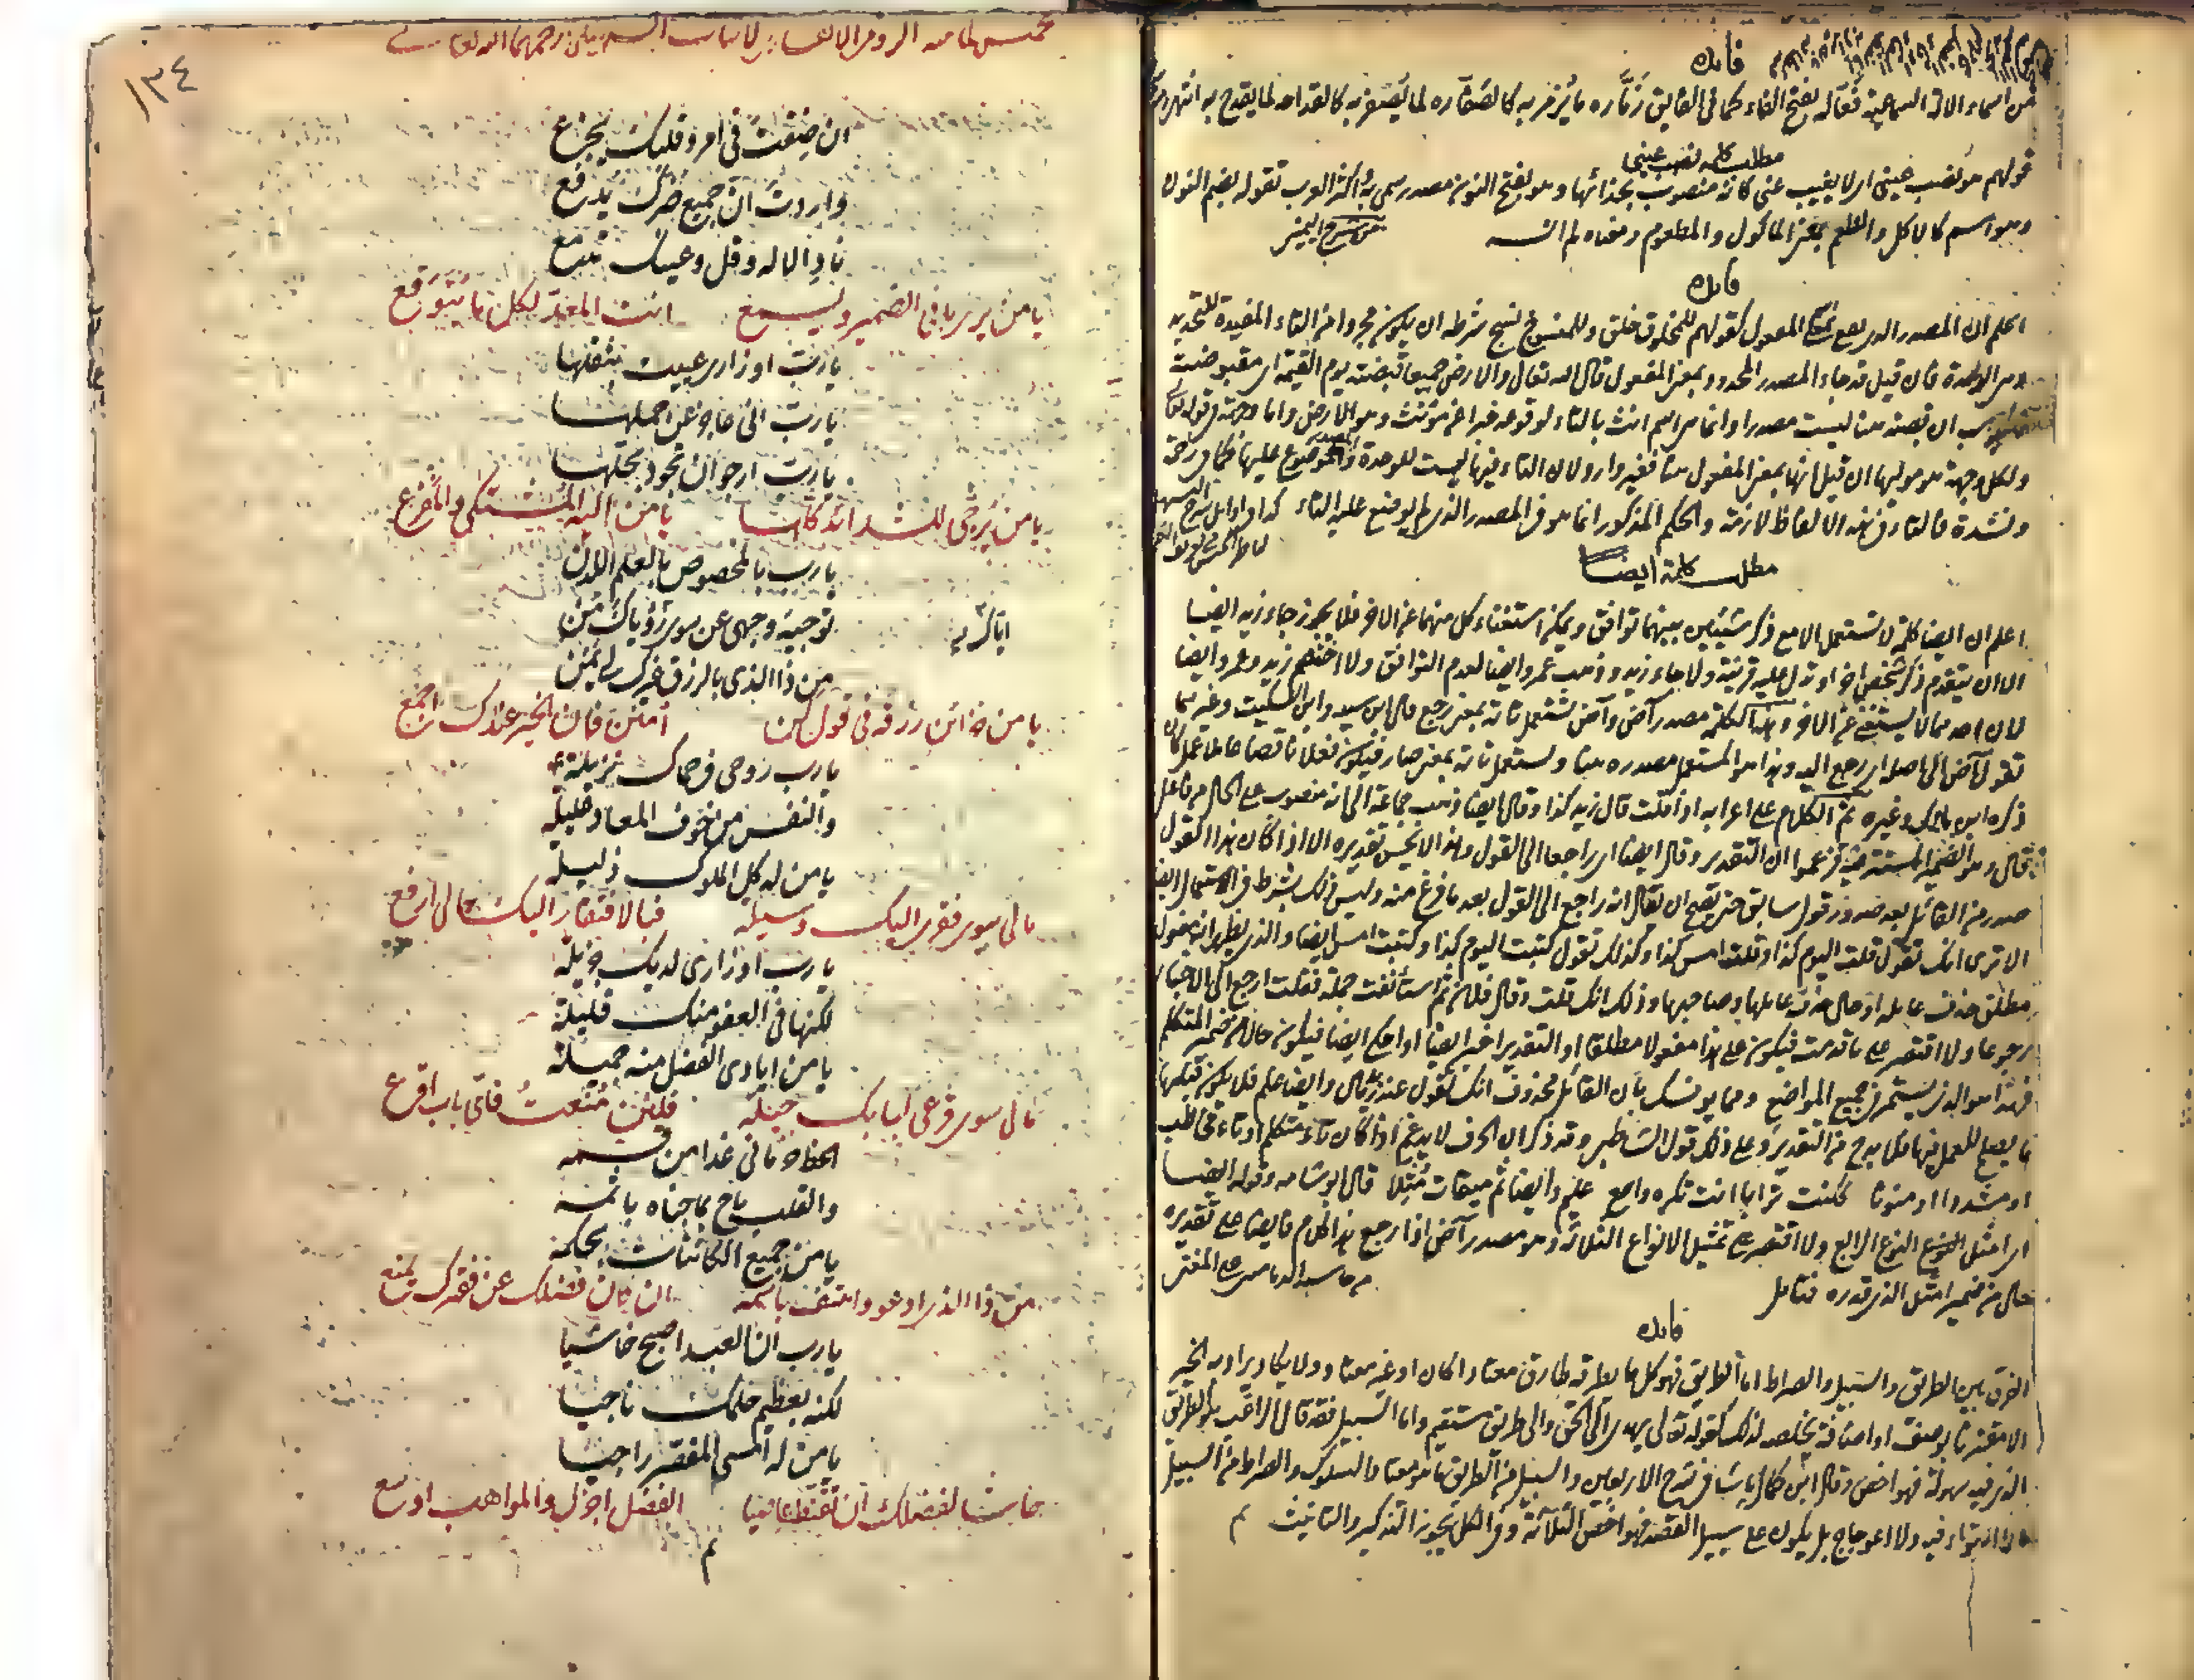 فائدة
من اسماء الآلة السماعية فعّالة بفتح الفاء كما في الفايق زمّاره ما يُزمر به كالصَفّاره لما يُصفر به كالقداحة لما يقدح به انتهى
مطلب كلمة نصب عيني
قولهم هو نُصب عيني اى لا يغيب عني كانه منصوب بحذائها وهو بفتح النون مصدر سمى به واكثر العرب تقوله بضم النون
وهو اسم كالاكل والطعم بمعنى المأكول والمطعوم ومعناه لم انسه
فائدة
اعلم ان المصدر الذى يقع بمعنى المفعول كقولهم للمخلوق خلق وللمنسوج نسج شرطه ان يكون مجردا من التاء المفيدة للتحديد
وهى الوحدة فان قيل قد جاء المصدر المحدود بمعنى المفعول قال الله تعالى والارض جميعا قبضته يوم القيمة اى مقبوضته
ان قبضته هنا ليست مصدرا وانما هى اسم انث بالتاء لوقوعه خبرا عن مؤنث وهو الارض واما وجهة في قوله تعالى
ولكل وجهة هو موليها ان قيل انها بمعنى المفعول هنا فغير وارد لان التاء فيها ليست للوحدة والمصدر موضوع عليها كما في رحمة
ونشدة فالتاء في هذه الالفاظ لازمة والحكم المذكور انما هو في المصدر الذى لم يوضع عليه التاء كذا في اوائل شرح التسهيل
مطلب كلمة ايضا
اعلم ان ايضا كلمة لا تستعمل الا مع ذكر شيئين بينهما توافق ويمكن استغناء كل منهما عن الآخر فلا يجوز جاء زيد ايضا
الا ان يتقدم ذكر شخص آخر او تدل عليه قرينة ولا جاء زيد وذهب عمرو ايضا لعدم التوافق ولا اختصم زيد وعمرو ايضا
لان احدهما لا يستغنى عن الآخر وهذه الكلمة مصدر آض وآض تستعمل تامة بمعنى رجع قال ابن سيده وابن السكيت وغيرهما
تقول آض الى اهله اى رجع اليه وهذا هو المستعمل مصدره هنا وتستعمل ناقصة بمعنى صار فيكون فعلا ناقصا عاملا عمل كان
ذكره ابن مالك وغيره ثم الكلام على اعرابه اذا قلت قال زيد كذا وقال ايضا ذهب جماعة الى انه منصوب على الحال من فاعل
قال وهو الضمير المستتر فيه زعموا ان التقدير وقال ايضا اى راجعا الى القول وهذا لا يحسن تقديره الا اذا كان هذا القول
صدر من القائل بعد صدور قول سابق حتى يصح ان يقال انه راجع الى القول بعد ما فرغ منه وليس ذلك بشرط في استعمال ايضا
الا ترى انك تقول قلت اليوم كذا وقلت امس كذا وكذلك تقول كتبت اليوم كذا وكتبت امس ايضا والذى يظهر انه مفعول
مطلق حذف عامله او حال حذف عاملها وصاحبها وذلك انك قلت وقال فلان ثم استأنفت جملة فقلت ارجع الى الاخبار
رجوعا ولا اقتصر على ما قدمت فيكون على هذا مفعولا مطلقا او التقدير اخبر ايضا او احكى ايضا فيكون حالا من ضمير المتكلم
فهذا هو الذى يستمر في جميع المواضع ومما يونسك بان القائل محذوف انك تقول عنده مال وايضا علم فلا يكون قبلها
ما يصلح للعمل فيها فلا بد ح من التقدير وعلى ذلك قول الشاطبي وقد ذكر ان الحرف لا يدغم اذا كان تاء متكلم او تاء مخاطب
او مشددا او منونا ككنت ترابا انت تكره واسع عليم وايضا تم ميقات مثلا قال ابو شامه وقوله ايضا
اى امثل النوع الرابع ولا اقتصر على تمثيل الانواع الثلاثة وهو مصدر آض اذا رجع هذا الكلام فايضا على تقديره
حال من ضمير امثل الذى قدره فتأمل
من حاشية الدماميني على المغنى
فائدة
الفرق بين الطريق والسبيل والصراط اما الطريق فهو كل ما يطرقه طارق معتادا كان او غير معتاد ولا يكاد يراد به الخير
الا مقترنا بوصف او اضافة تخلصه لذلك كقوله تعالى يهدى الى الحق والى طريق مستقيم واما السبيل فقد قال الراغب هو الطريق
الذى فيه سهولة فهو اخص وقال ابن كمال باشا في شرح الاربعين والسبيل من الطريق ما هو معتاد السلوك والصراط من السبيل
ما لا التواء فيه ولا اعوجاج بل يكون على سبيل القصد فهو اخص الثلاثة وفي الكل يجوز التذكير والتانيث م
١٣٤
ان ضِقتَ في امر وقلبك يجزع
واردتَ انَّ جميع ضرك يُدفع
نادِ الاله وقل وعينك تدمع
يا من يرى ما في الضمير ويسمع انت المعدّ لكل ما يتوقع
يا ربّ اوزارى عييت بثقلها
يا ربّ انى عاجز عن حملها
يا ربّ ارجو ان تجود بحلها
يا من يُرجّى للشدائد كلها يا من اليه المشتكى والمفزع
يا رب بالمخصوص بالعلم اللدن
توجيه وجهى عن سوى رؤياك صُن
من ذا الذى بالرزق غيرك لى يَمُن
يا من خزائن رزقه في قول كن امنن فان الخير عندك اجمع
يا رب روحى في حماك نزيلة
والنفس من خوف المعاد عليلة
يا من له كل الملوك ذليله
مالى سوى فقرى اليك وسيلة فبالافتقار اليك حالى ارفع
يا رب اوزارى لديك جزيلة
لكنها في العفو منك قليلة
يا من ايادى الفضل منه جميلة
مالى سوى قرعى لبابك حيلة فلئن مُنعتُ فاىّ باب اقرع
والقلب باح بما جناه باثمه
يا من جميع الكائنات بحكمه
من ذا الذى ادعو واهتف باسمه ان كان فضلك عن فقيرك يمنع
يا رب ان العبد اصبح خاشيا
لكنه بعظيم حلمك ناجيا
يا من له امسى المقصر راجيا
حاشا لفضلك ان تقنط عاصيا الفضل اجزل والمواهب اوسع
تم